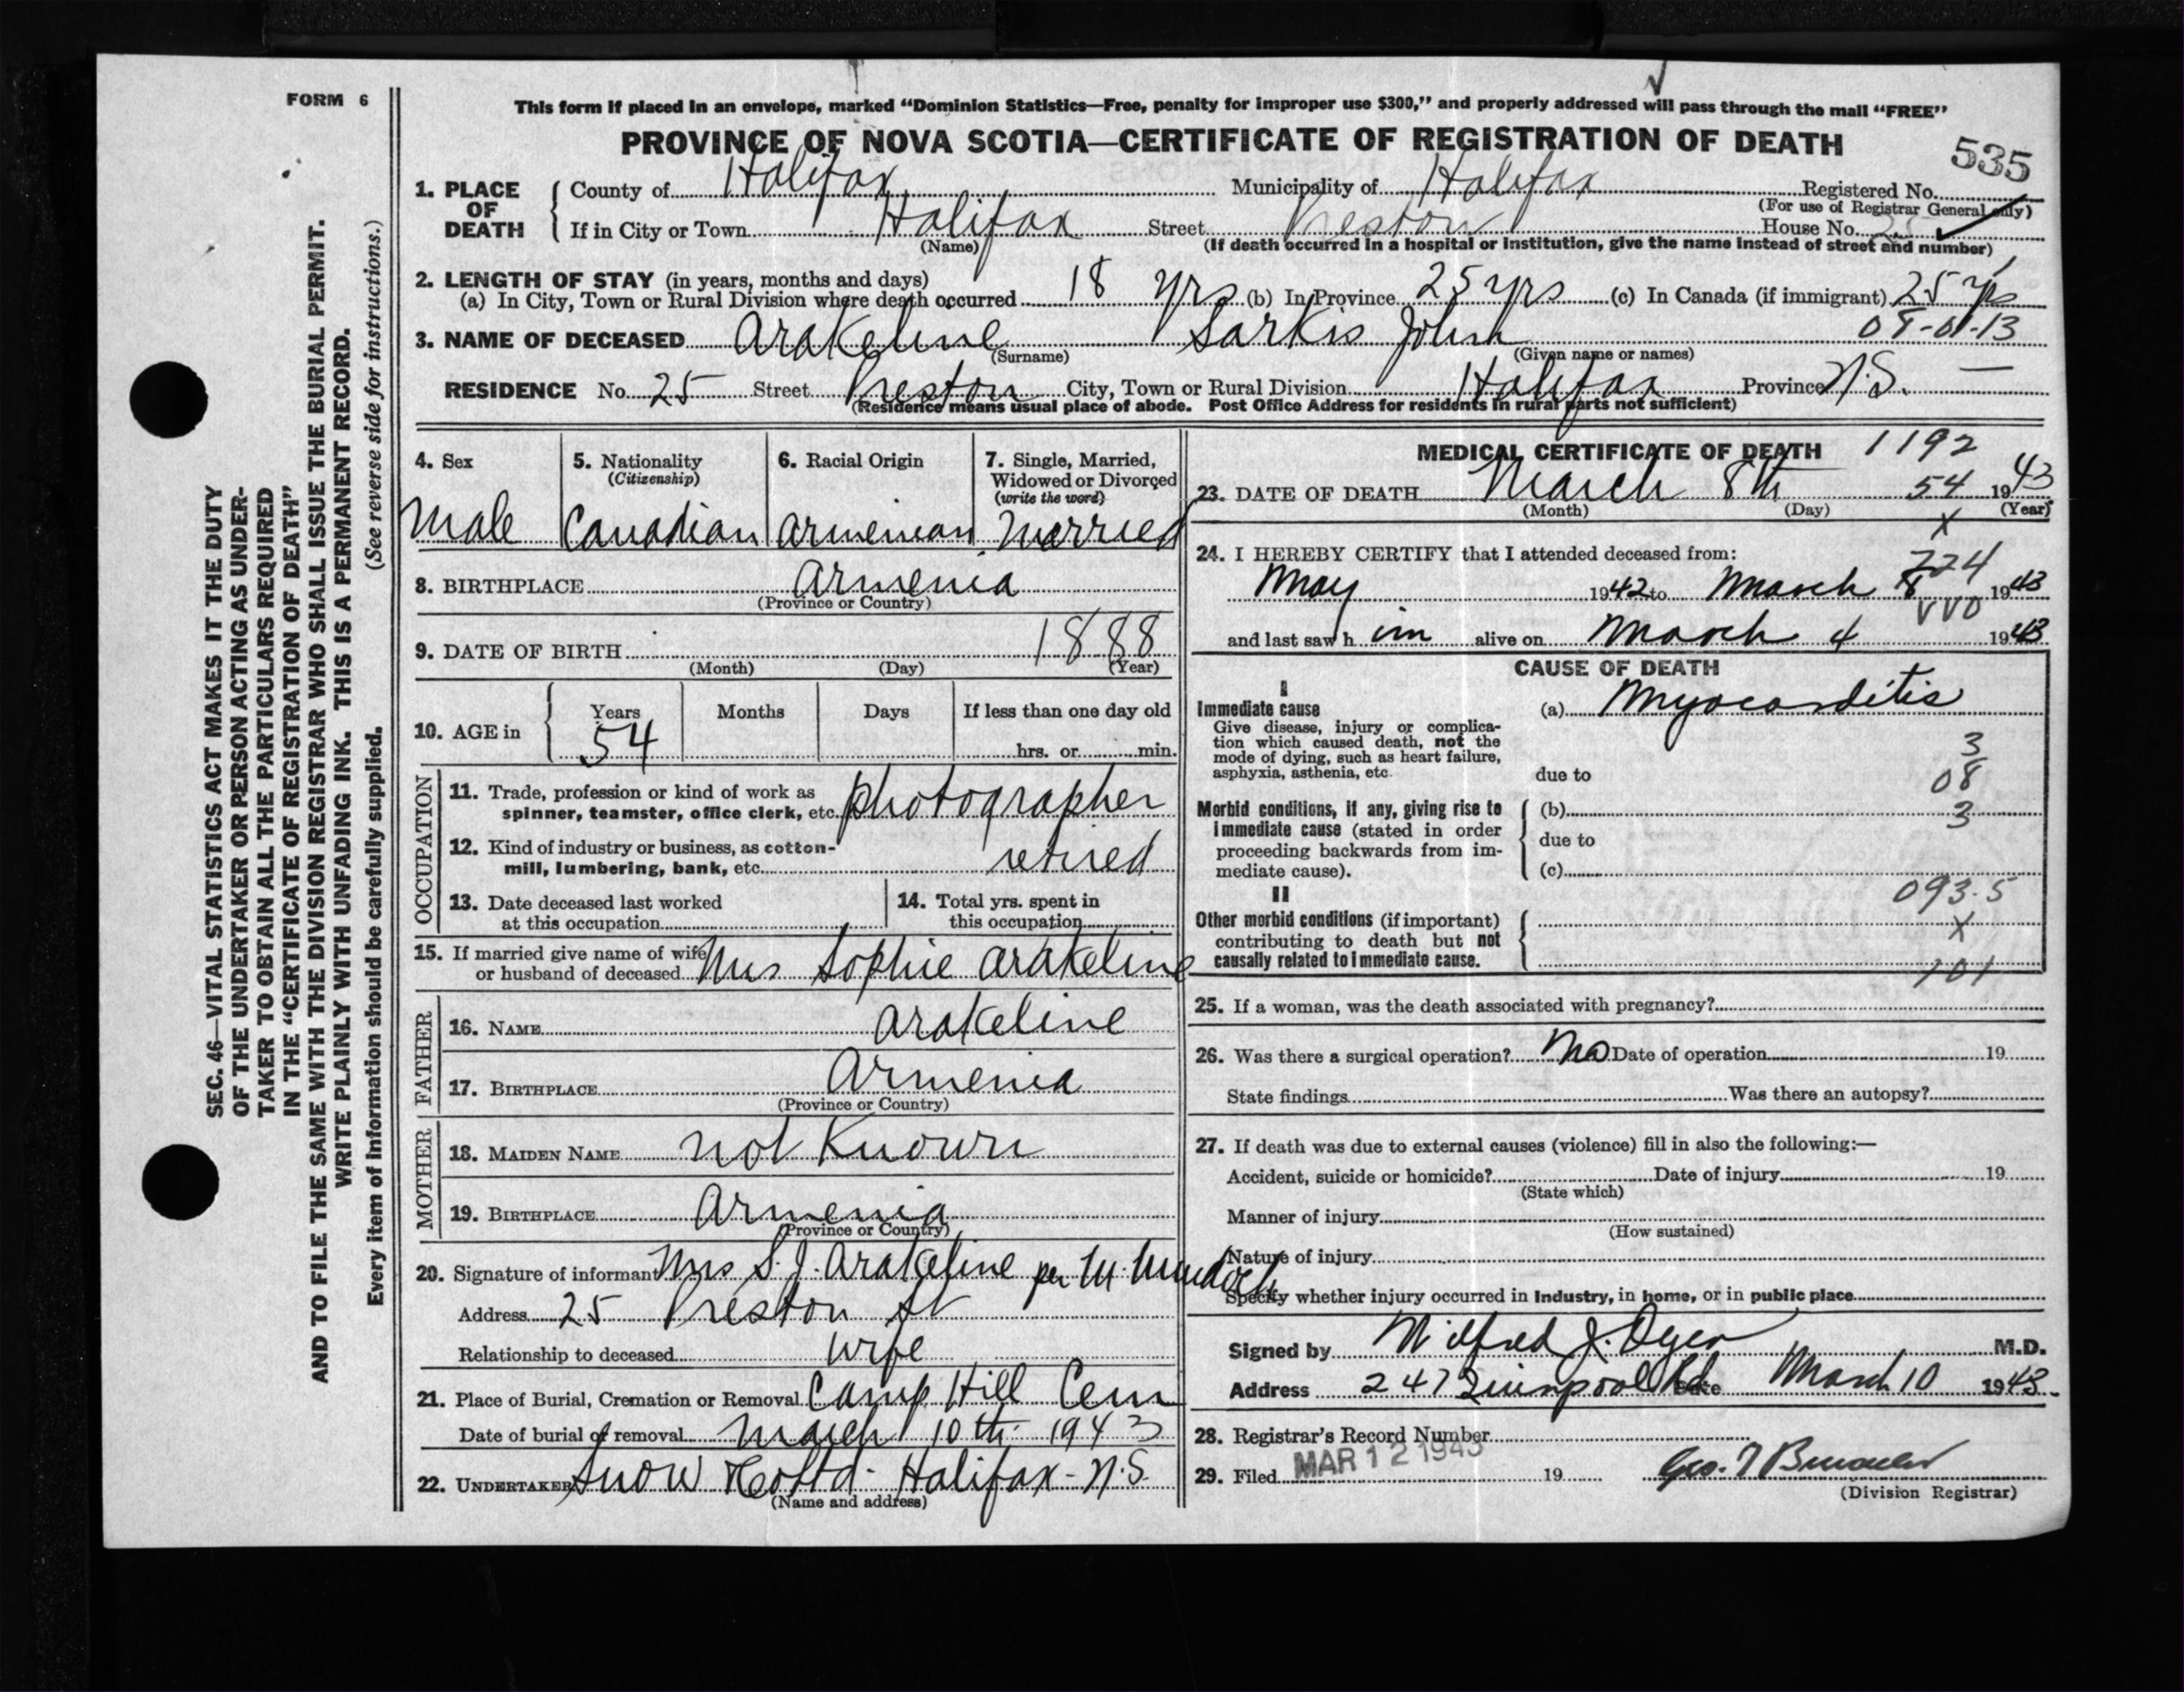 FORM 6
SEC. 46—VITAL STATISTICS ACT MAKES IT THE DUTY
OF THE UNDERTAKER OR PERSON ACTING AS UNDER-
TAKER TO OBTAIN ALL THE PARTICULARS REQUIRED
IN THE "CERTIFICATE OF REGISTRATION OF DEATH"
AND TO FILE THE SAME WITH THE DIVISION REGISTRAR WHO SHALL ISSUE THE BURIAL PERMIT.
WRITE PLAINLY WITH UNFADING INK. THIS IS A PERMANENT RECORD.
Every item of information should be carefully supplied. (See reverse side for instructions.)
This form if placed in an envelope, marked "Dominion Statistics—Free, penalty for improper use $300," and properly addressed will pass through the mail "FREE"
PROVINCE OF NOVA SCOTIA—CERTIFICATE OF REGISTRATION OF DEATH
535
1. PLACE OF DEATH County of Halifax Municipality of Halifax Registered No.
(For use of Registrar General only)
If in City or Town Halifax Street Preston House No.
(Name) (If death occurred in a hospital or institution, give the name instead of street and number)
2. LENGTH OF STAY (in years, months and days)
(a) In City, Town or Rural Division where death occurred 18 yrs (b) In Province 25 yrs (c) In Canada (if immigrant) 25 yrs
3. NAME OF DECEASED Arakeline Sarkis John
(Surname) (Given name or names)
RESIDENCE No. 25 Street Preston City, Town or Rural Division Halifax Province N.S. —
(Residence means usual place of abode. Post Office Address for residents in rural parts not sufficient)
4. Sex
Male
5. Nationality
(Citizenship)
Canadian
6. Racial Origin
Armenian
7. Single, Married,
Widowed or Divorced
(write the word)
Married
8. BIRTHPLACE Armenia
(Province or Country)
9. DATE OF BIRTH 1888
(Month) (Day) (Year)
10. AGE in Years Months Days If less than one day old
54 hrs. or min.
OCCUPATION
11. Trade, profession or kind of work as
spinner, teamster, office clerk, etc. photographer
12. Kind of industry or business, as cotton-
mill, lumbering, bank, etc. retired
13. Date deceased last worked
at this occupation
14. Total yrs. spent in
this occupation
15. If married give name of wife
or husband of deceased Mrs Sophie Arakeline
FATHER
16. NAME Arakeline
17. BIRTHPLACE Armenia
(Province or Country)
MOTHER
18. MAIDEN NAME not Known
19. BIRTHPLACE Armenia
(Province or Country)
20. Signature of informant Mrs S. J. Arakeline per M. Murdoch
Address 25 Preston St
Relationship to deceased wife
21. Place of Burial, Cremation or Removal Camp Hill Cem
Date of burial or removal March 10th 1943
22. UNDERTAKER Snow & Co Ltd - Halifax - N.S.
(Name and address)
MEDICAL CERTIFICATE OF DEATH 1192
23. DATE OF DEATH March 8th 54 1943
(Month) (Day) (Year)
X
24. I HEREBY CERTIFY that I attended deceased from:
724
May 1942 to March 8 1943
VVO
and last saw him alive on March 4 1943
CAUSE OF DEATH
I
Immediate cause (a) Myocarditis
Give disease, injury or complica-
tion which caused death, not the
mode of dying, such as heart failure,
asphyxia, asthenia, etc.
3
due to 08
Morbid conditions, if any, giving rise to
immediate cause (stated in order
proceeding backwards from im-
mediate cause).
(b) 3
due to
(c)
II
093.5
Other morbid conditions (if important)
contributing to death but not
causally related to immediate cause.
X
101
25. If a woman, was the death associated with pregnancy?
26. Was there a surgical operation? No Date of operation 19
State findings Was there an autopsy?
27. If death was due to external causes (violence) fill in also the following:—
Accident, suicide or homicide? Date of injury 19
(State which)
Manner of injury
(How sustained)
Nature of injury
Specify whether injury occurred in Industry, in home, or in public place
Signed by Wilfred J. Dyer M.D.
Address 247 Quinpool Rd Date March 10 1943.
28. Registrar's Record Number
29. Filed MAR 12 1943 19
(Division Registrar)